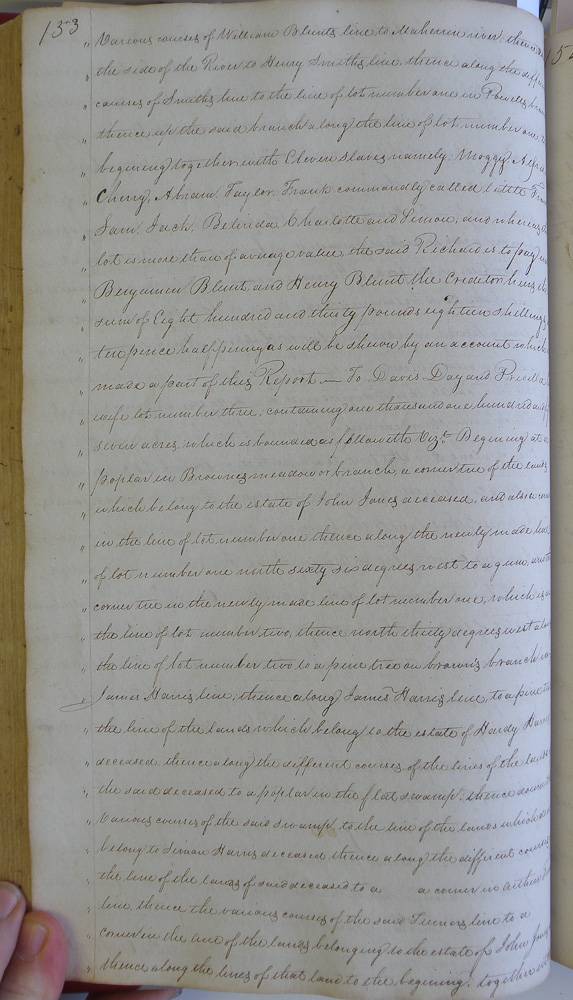 153
" Various courses of William Blunts line to Maherrin river, thence
" the side of the River to Henry Smiths line, thence along the
" courses of Smiths line to the line of lot number one in
" thence up the said branch along the line of lot number one, to
" begining together with Eleven slaves namely. Moggy,
" Cherry, Abram. Taylor. Frank commondly called little
" Sam. Jack. Belinda, Charlotte and Simon; and whereas
" lot is more than of average value the said Richard is to pay
" Benjamin Blunt and Henry Blunt the Creditors
" sum of Eight hundred and thirty pounds eighteen shillings
" ten pence halfpenny as will be shewn by an account which
" made a part of this Report — To Davis Day and
" wife lot number three, containing one thousand one hundred
" seven acres which is bounded as followeth Vizt. Begining at a
" poplar in Browns meadow or branch, a corner tree of the lands
" which belong to the estate of John Jones deceased, and also a
" in the line of lot number one thence along the newly made line
" of lot number one north sixty six degrees west to a gum,
" corner tree in the newly made line of lot number one, which is
" the line of lot number two, thence north thirty degrees west
" the line of lot number two to a pine tree on browns branch
James Harris line; thence along James Harris line, to a pine
" the line of the lands which belong to the estate of Hardy
" deceased thence along the different courses of the lines of the
" the said deceased to a poplar in the flat swamp: thence down
" Various courses of the said swamp to the line of the lands which
" belong to Simon Harris deceased thence along the different courses
" the line of the lands of said deceased to a a corner in
" line, thence the various courses of the said line to a
" corner in the line of the lands belonging to the estate of John
" thence along the lines of that land to the begining, together